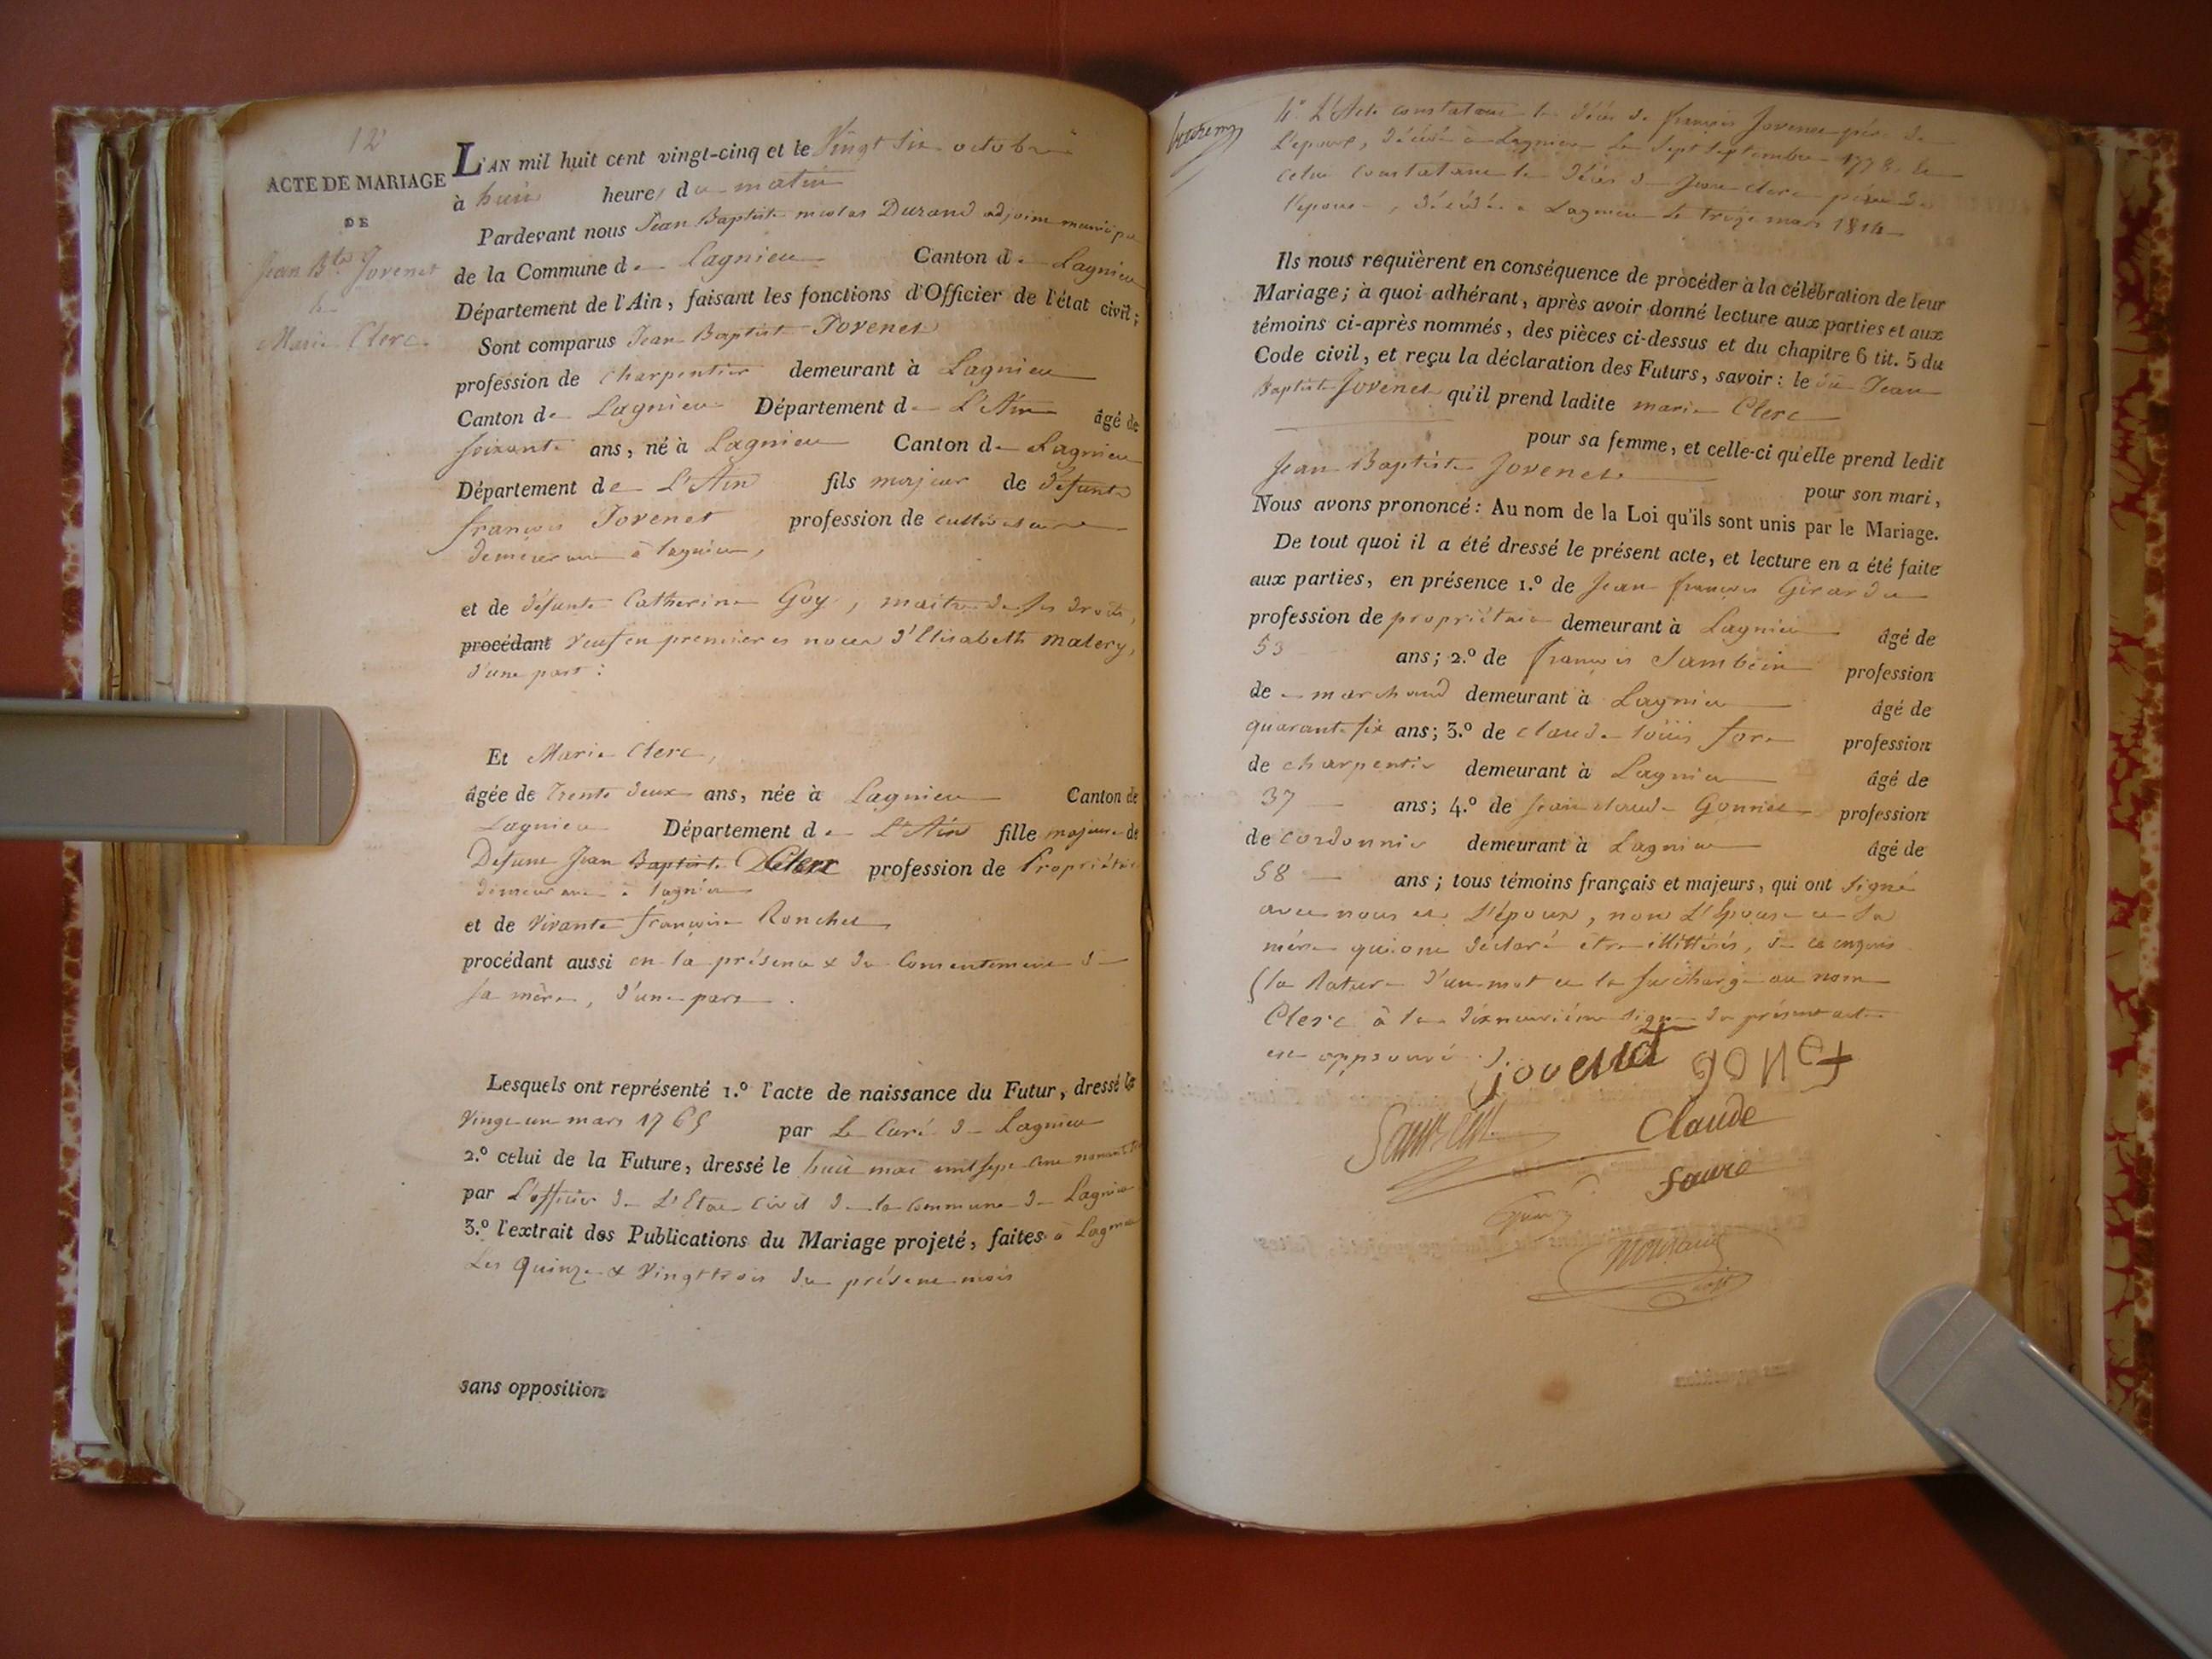 12
ACTE DE MARIAGE
DE
Jean Bte Jovenet
&
Marie Clerc.
L'AN mil huit cent vingt-cinq et le Vingt six octobre
à huit heures du matin
Pardevant nous Jean Baptiste nicolas Durand adjoint municipal
de la Commune de Lagnieu Canton de Lagnieu
Département de l'Ain, faisant les fonctions d'Officier de l'état civil;
Sont comparus Jean Baptiste Jovenet
profession de Charpentier demeurant à Lagnieu
Canton de Lagnieu Département de L'Ain âgé de
soixante ans, né à Lagnieu Canton de Lagnieu
Département de L'Ain fils majeur de défunt
françois Jovenet profession de cultivateur
demeurant à lagnieu,
et de défunte Catherine Goy, maitre de ses droits,
procédant veuf en premieres noces d'Elisabeth malery,
d'une part:
Et Marie Clerc,
âgée de Trente deux ans, née à Lagnieu Canton de
Lagnieu Département de L'Ain fille majeure de
Defunt Jean Baptiste Clerc profession de Propriétaire
demeurant à lagnieu
et de vivante françoise Ronchet
procédant aussi en la présence & du Consentement de
sa mère, d'une part.
Lesquels ont représenté 1.º l'acte de naissance du Futur, dressé le
Vingt-un mars 1765 par Le Curé de Lagnieu
2.º celui de la Future, dressé le huit mai mil sept cent
par L'officier de L'Etat civil de la Commune de Lagnieu
3.º l'extrait des Publications du Mariage projeté, faites à Lagnieu
Les quinze & Vingt trois du présent mois
sans opposition
4º L'Acte constatant le décès de françois Jovenet père de
L'epoux, décédé à Lagnieu le sept septembre 1778. &
celui constatant le décès de Jean Clerc père de
l'epouse, décédé à Lagnieu le treize mars 1814
Ils nous requièrent en conséquence de procéder à la célébration de leur
Mariage; à quoi adhérant, après avoir donné lecture aux parties et aux
témoins ci-après nommés, des pièces ci-dessus et du chapitre 6 tit. 5 du
Code civil, et reçu la déclaration des Futurs, savoir: le dit Jean
Baptiste Jovenet qu'il prend ladite marie Clerc
pour sa femme, et celle-ci qu'elle prend ledit
Jean Baptiste Jovenet
pour son mari,
Nous avons prononcé: Au nom de la Loi qu'ils sont unis par le Mariage.
De tout quoi il a été dressé le présent acte, et lecture en a été faite
aux parties, en présence 1.º de Jean françois
profession de propriétaire demeurant à Lagnieu âgé de
53 ans; 2.º de françois Sambein profession
de marchand demeurant à Lagnieu âgé de
quarante six ans; 3.º de claude loüis fore profession
de charpentier demeurant à Lagnieu âgé de
37 ans; 4.º de Jean claude Gonnet profession
de cordonnier demeurant à Lagnieu âgé de
58 ans; tous témoins français et majeurs, qui ont signé
avec nous et L'époux, non L'Epouse et sa
mère qui ont déclaré être illittérés, de ce enquis
(la Rature d'un mot et la surcharge au nom
Clerc à la dixneuvième ligne du présent acte
est approuvé.)
jovenet gonet
Claude
faure